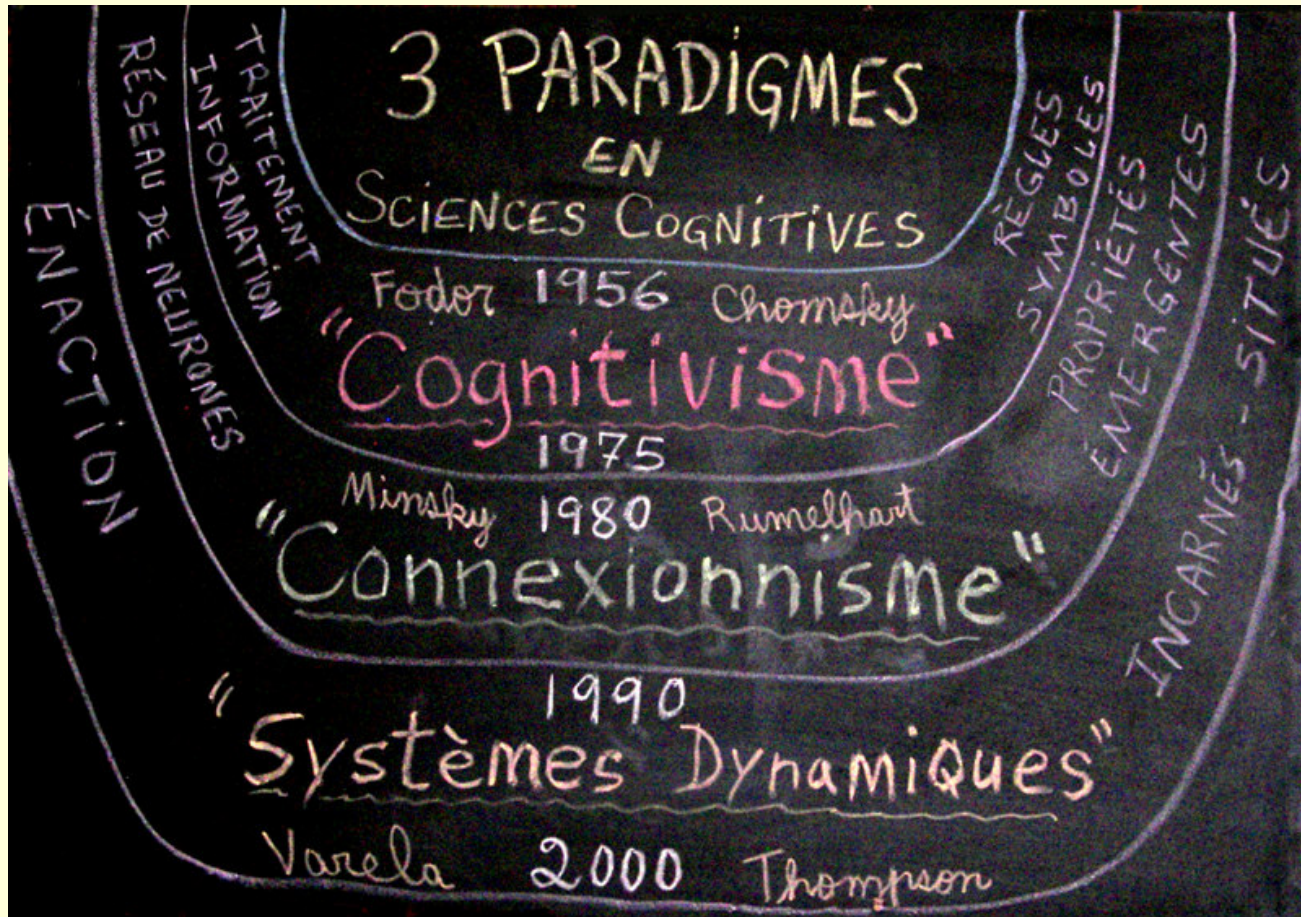 3 PARADiGMES
EN
SCiENCES COGNiTiVES
TRAITEMENT
INFORMATION
RÈGLES
SYMBOLES
Fodor 1956 Chomsky
"Cognitivisme"
1975
RÉSEAU DE NEURONES
PROPRIÉTÉS
ÉMERGENTES
Minsky 1980 Rumelhart
"Connexionnisme"
ÉNACTiON
INCARNÉS - SiTUÉS
1990
"Systèmes Dynamiques"
Varela 2000 Thompson